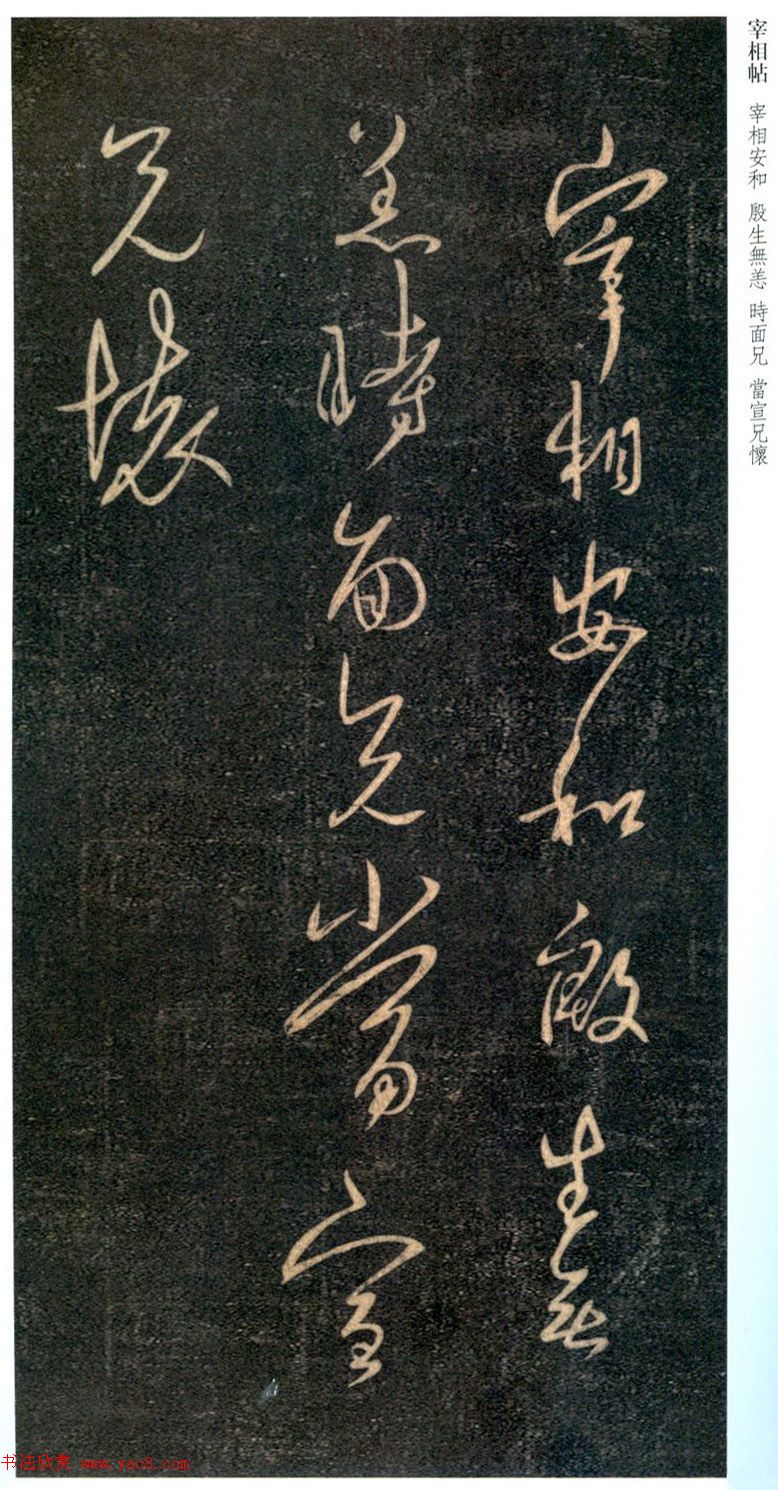 宰相帖 宰相安和 殷生無恙 時面兄 當宣兄懷
宰相安和殷生無
恙時面兄當宣
兄懷
书法欣赏 www.yac8.com